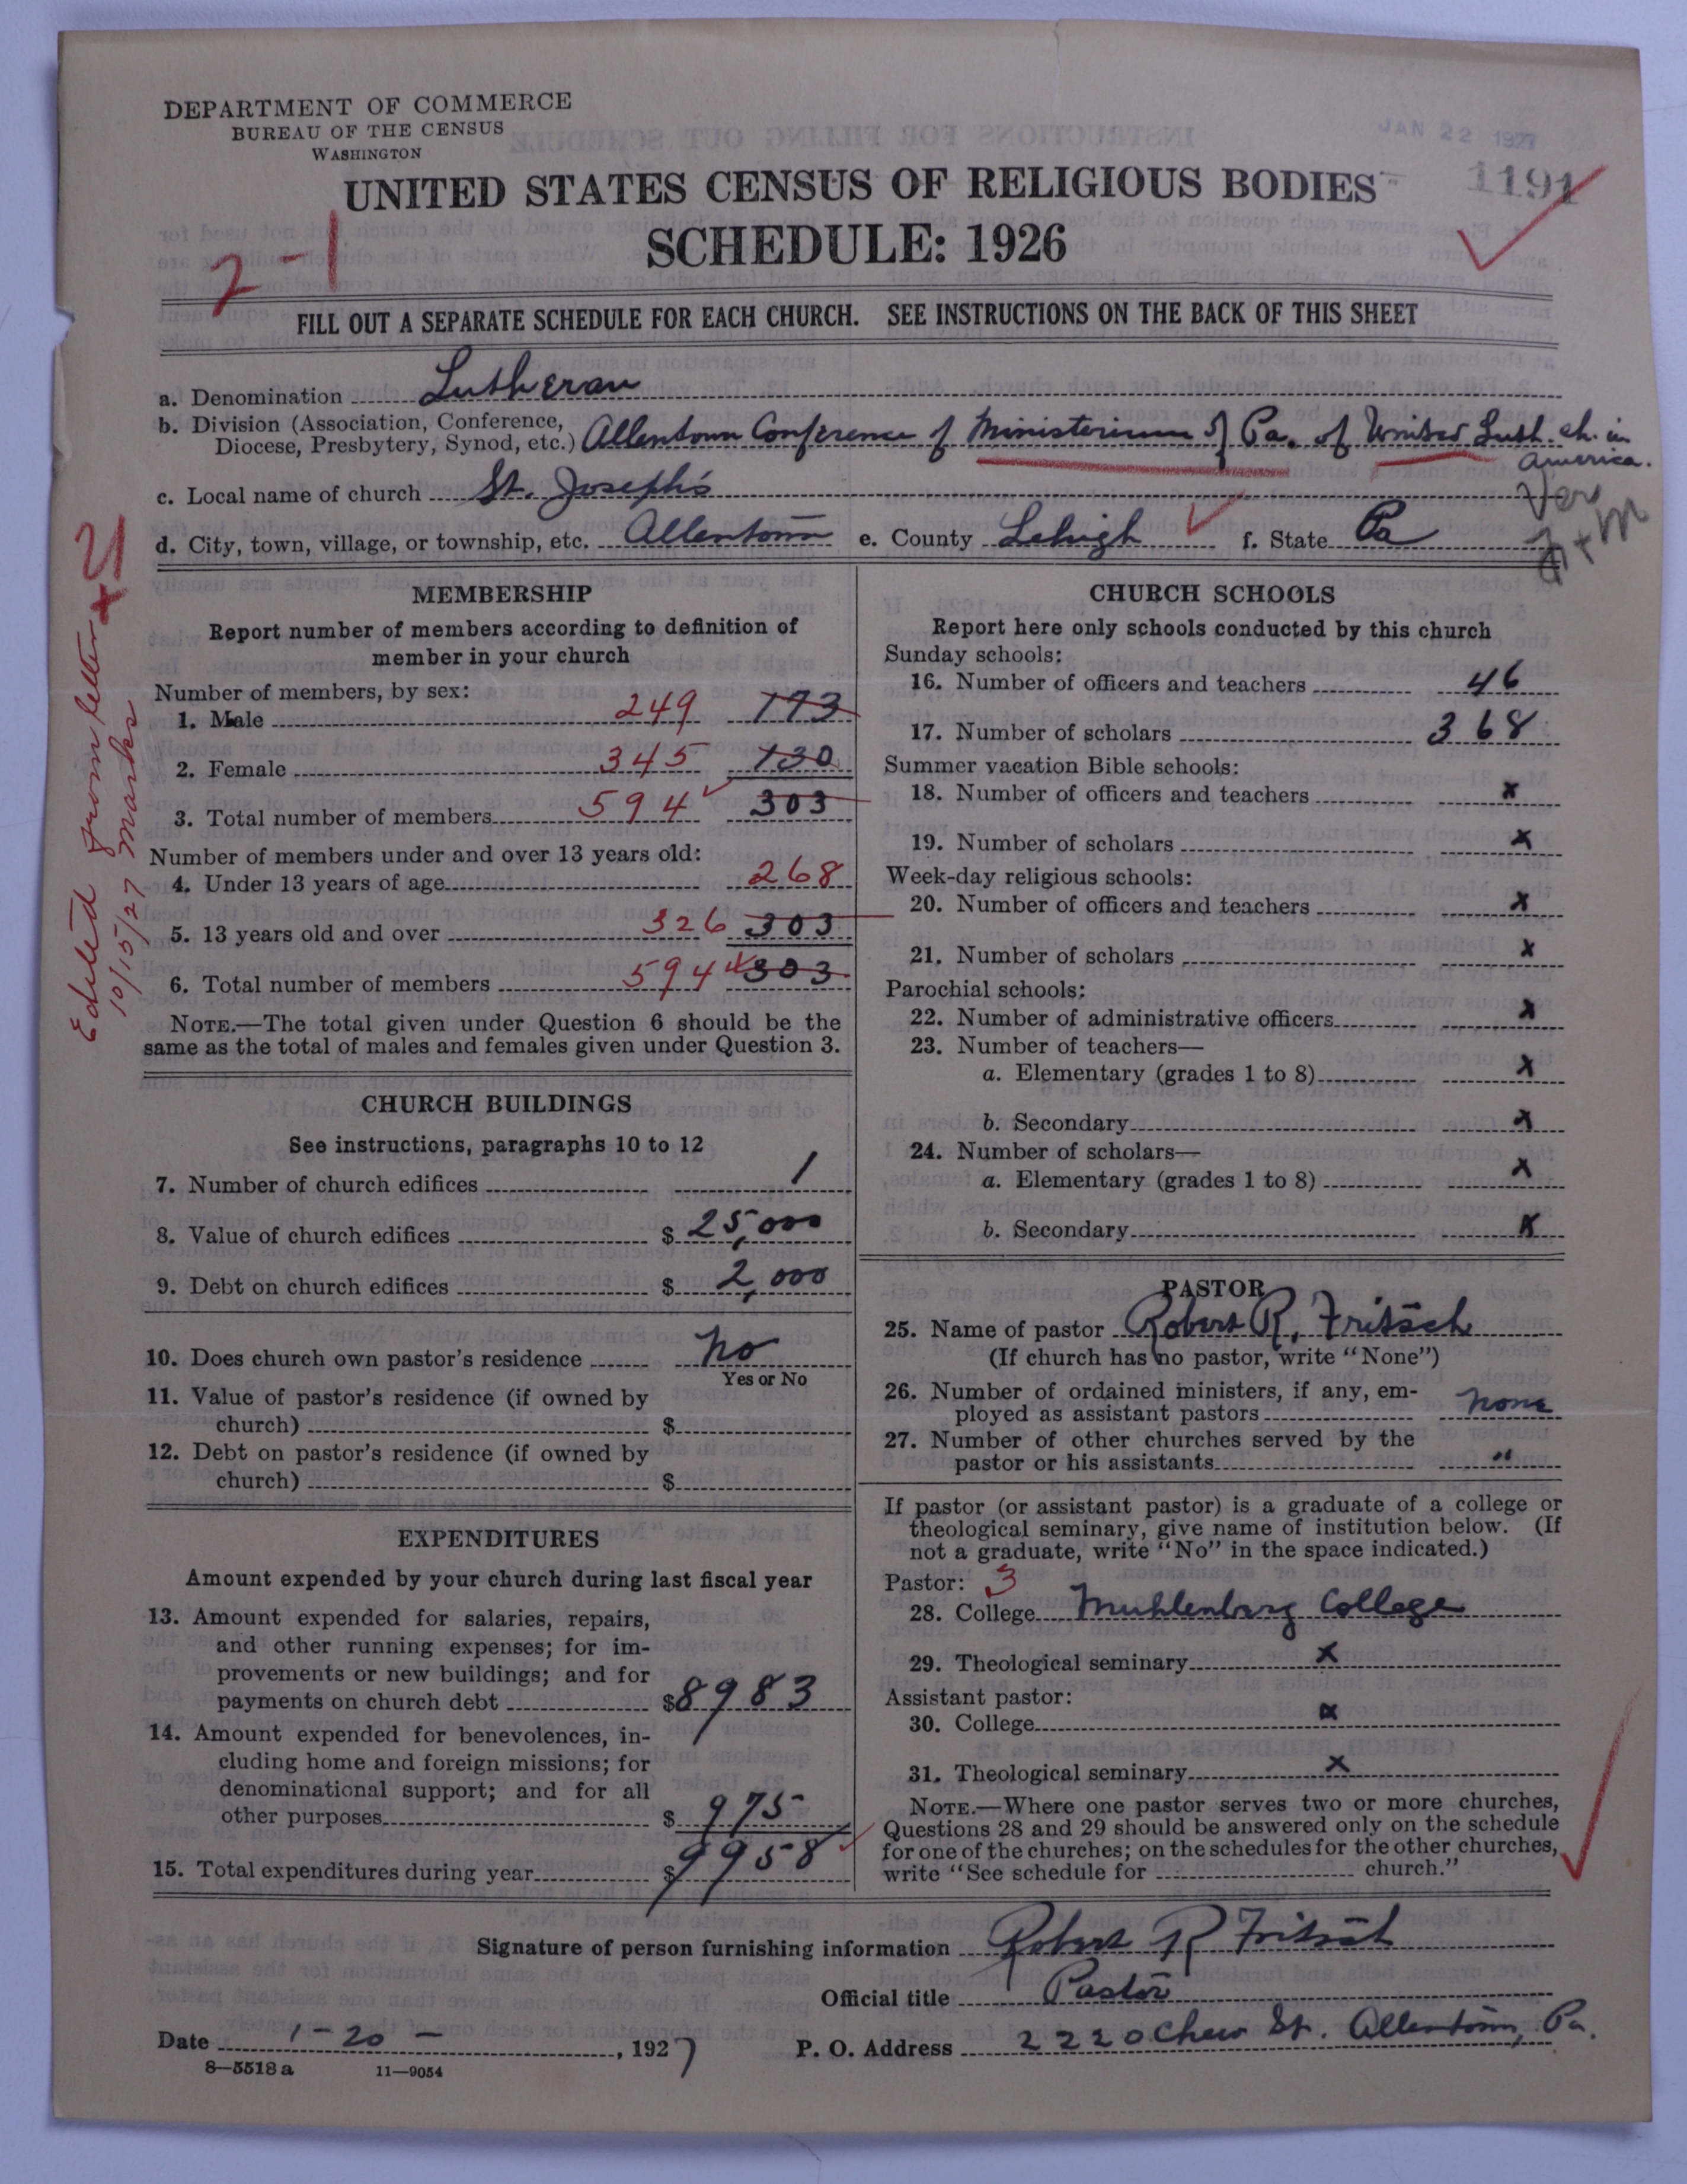 DEPARTMENT OF COMMERCE
BUREAU OF THE CENSUS
WASHINGTON
JAN 22 1927
1191
UNITED STATES CENSUS OF RELIGIOUS BODIES
SCHEDULE: 1926
2-1
FILL OUT A SEPARATE SCHEDULE FOR EACH CHURCH. SEE INSTRUCTIONS ON THE BACK OF THIS SHEET
a. Denomination Lutheran
b. Division (Association, Conference,
Diocese, Presbytery, Synod, etc.) Allentown Conference of Ministerium of Pa. of United Luth. ch. in
America.
c. Local name of church St. Joseph's
d. City, town, village, or township, etc. Allentown e. County Lehigh f. State Pa
Edited from letter
10/15/27 Marks
MEMBERSHIP
Report number of members according to definition of
member in your church
Number of members, by sex:
1. Male 249 173
2. Female 345 130
3. Total number of members 594 303
Number of members under and over 13 years old:
4. Under 13 years of age 268
5. 13 years old and over 326 303
6. Total number of members 594 303
NOTE.—The total given under Question 6 should be the
same as the total of males and females given under Question 3.
CHURCH BUILDINGS
See instructions, paragraphs 10 to 12
7. Number of church edifices 1
8. Value of church edifices $ 25,000
9. Debt on church edifices $ 2,000
10. Does church own pastor's residence No
Yes or No
11. Value of pastor's residence (if owned by
church) $
12. Debt on pastor's residence (if owned by
church) $
EXPENDITURES
Amount expended by your church during last fiscal year
13. Amount expended for salaries, repairs,
and other running expenses; for im-
provements or new buildings; and for
payments on church debt $8983
14. Amount expended for benevolences, in-
cluding home and foreign missions; for
denominational support; and for all
other purposes $ 975
15. Total expenditures during year $9958
CHURCH SCHOOLS
Report here only schools conducted by this church
Sunday schools:
16. Number of officers and teachers 46
17. Number of scholars 368
Summer vacation Bible schools:
18. Number of officers and teachers x
19. Number of scholars x
Week-day religious schools:
20. Number of officers and teachers x
21. Number of scholars x
Parochial schools:
22. Number of administrative officers x
23. Number of teachers—
a. Elementary (grades 1 to 8) x
b. Secondary x
24. Number of scholars—
a. Elementary (grades 1 to 8) x
b. Secondary x
PASTOR
25. Name of pastor Robert R. Fritsch
(If church has no pastor, write "None")
26. Number of ordained ministers, if any, em-
ployed as assistant pastors none
27. Number of other churches served by the
pastor or his assistants "
If pastor (or assistant pastor) is a graduate of a college or
theological seminary, give name of institution below. (If
not a graduate, write "No" in the space indicated.)
Pastor: 3
28. College Muhlenberg College
29. Theological seminary x
Assistant pastor:
30. College x
31. Theological seminary x
NOTE.—Where one pastor serves two or more churches,
Questions 28 and 29 should be answered only on the schedule
for one of the churches; on the schedules for the other churches,
write "See schedule for church."
Signature of person furnishing information Robert R Fritsch
Official title Pastor
Date 1-20-, 1927 P. O. Address 2220 Chew St. Allentown, Pa.
8—5518 a 11—9054